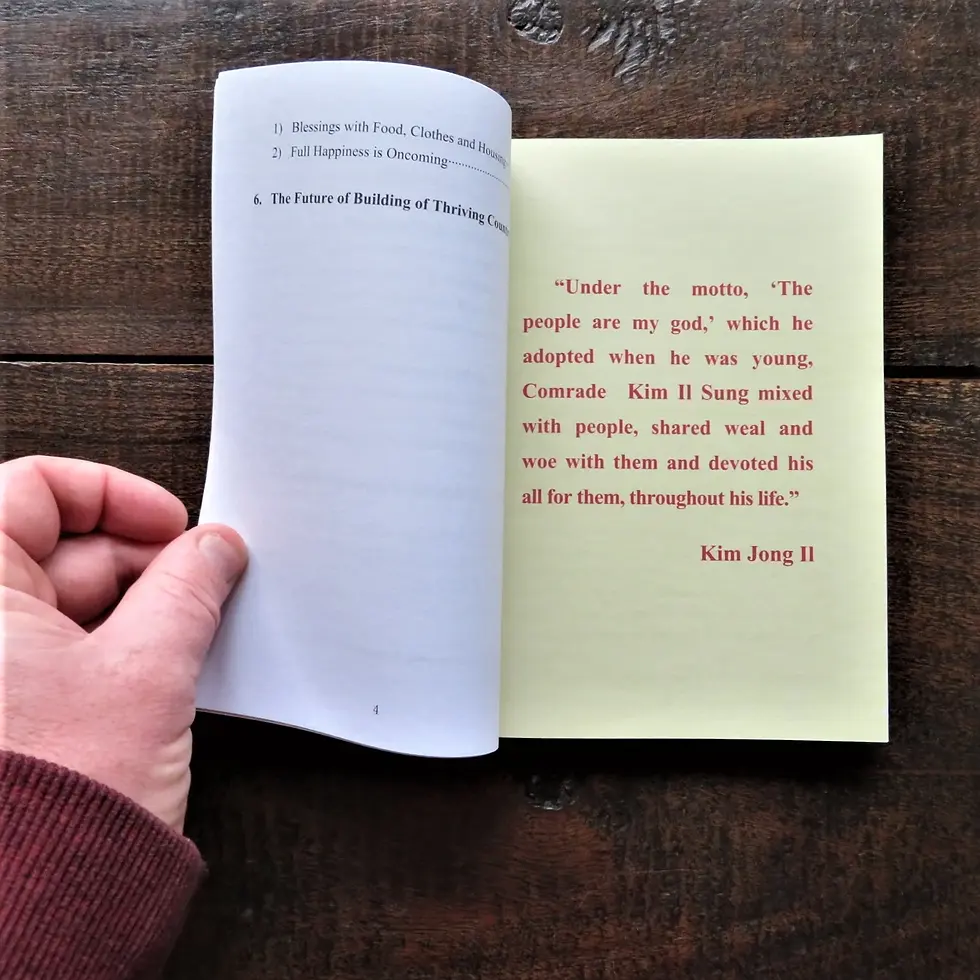 1) Blessings with Food, Clothes and Housing
2) Full Happiness is Oncoming................
6. The Future of Building of Thriving
4
“Under the motto, ‘The
people are my god,’ which he
adopted when he was young,
Comrade Kim Il Sung mixed
with people, shared weal and
woe with them and devoted his
all for them, throughout his life.”
Kim Jong Il